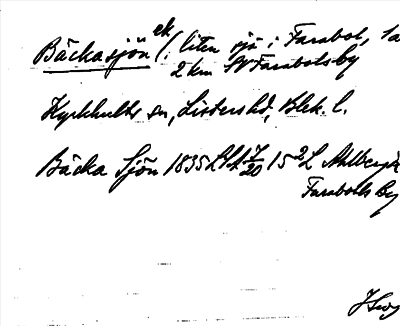 Bäckasjön ek (: liten sjö i Farabol, 1a
2 km SV Farabols by
Kyrkhults sn, Listers hd, Blek. l.
Bäcka Sjön 1835 LSA 7/20 15 2 L Ahlbergs
Farabols By